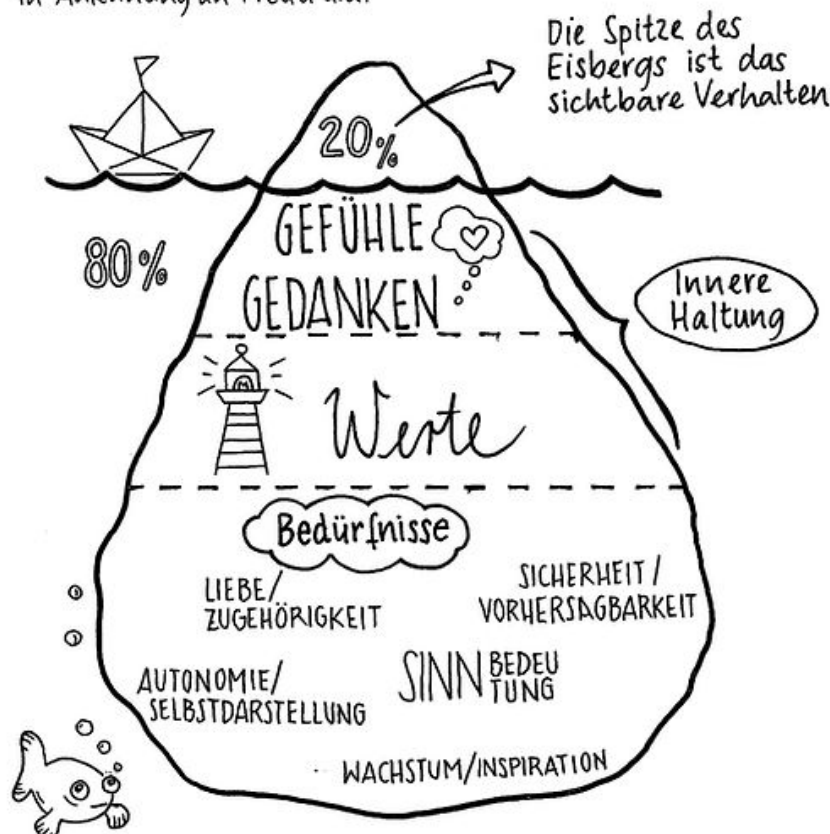 in Anlehnung an Freud u.a.
Die Spitze des
Eisbergs ist das
sichtbare Verhalten
20%
80%
GEFÜHLE
GEDANKEN
Innere
Haltung
Werte
Bedürfnisse
LIEBE/
ZUGEHÖRIGKEIT
SICHERHEIT/
VORHERSAGBARKEIT
AUTONOMIE/
SELBSTDARSTELLUNG
SINN BEDEU
TUNG
WACHSTUM/INSPIRATION